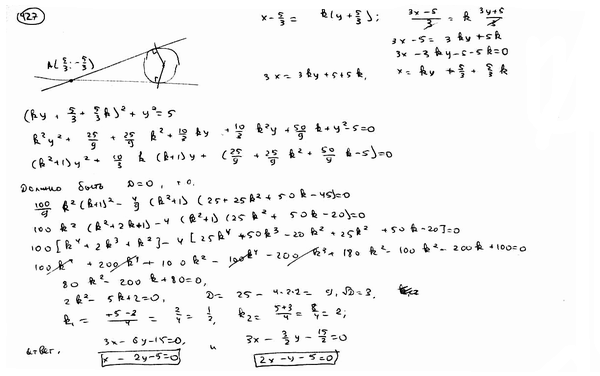 927
x - 5/3 = k(y + 5/3); (3x-5)/3 = k (3y+5)/3
3x - 5 = 3ky + 5k
3x - 3ky - 5 - 5k = 0
A(5/3; -5/3)
3x = 3ky + 5 + 5k, x = ky + 5/3 + 5/3 k
(ky + 5/3 + 5/3 k)² + y² = 5
k²y² + 25/9 + 25/9 k² + 10/3 ky + 10/3 k²y + 50/9 k + y² - 5 = 0
(k²+1)y² + 10/3 k (k+1)y + (25/9 + 25/9 k² + 50/9 k - 5) = 0
Должно быть D=0, т.е.
100/9 k²(k+1)² - 4/9 (k²+1)(25 + 25k² + 50k - 45) = 0
100k²(k²+2k+1) - 4(k²+1)(25k² + 50k - 20) = 0
100[k⁴ + 2k³ + k²] - 4[25k⁴ + 50k³ - 20k² + 25k² + 50k - 20] = 0
100k⁴ + 200k³ + 100k² - 100k⁴ - 200k³ + 80k² - 100k² - 200k + 80 = 0
80k² - 200k + 80 = 0,
2k² - 5k + 2 = 0, D = 25 - 4·2·2 = 9, √D = 3,
k₁ = (+5-3)/4 = 2/4 = 1/2, k₂ = (5+3)/4 = 8/4 = 2;
Ответ. 3x - 6y - 15 = 0 и 3x - 3/2 y - 15/2 = 0
x - 2y - 5 = 0 2x - y - 5 = 0